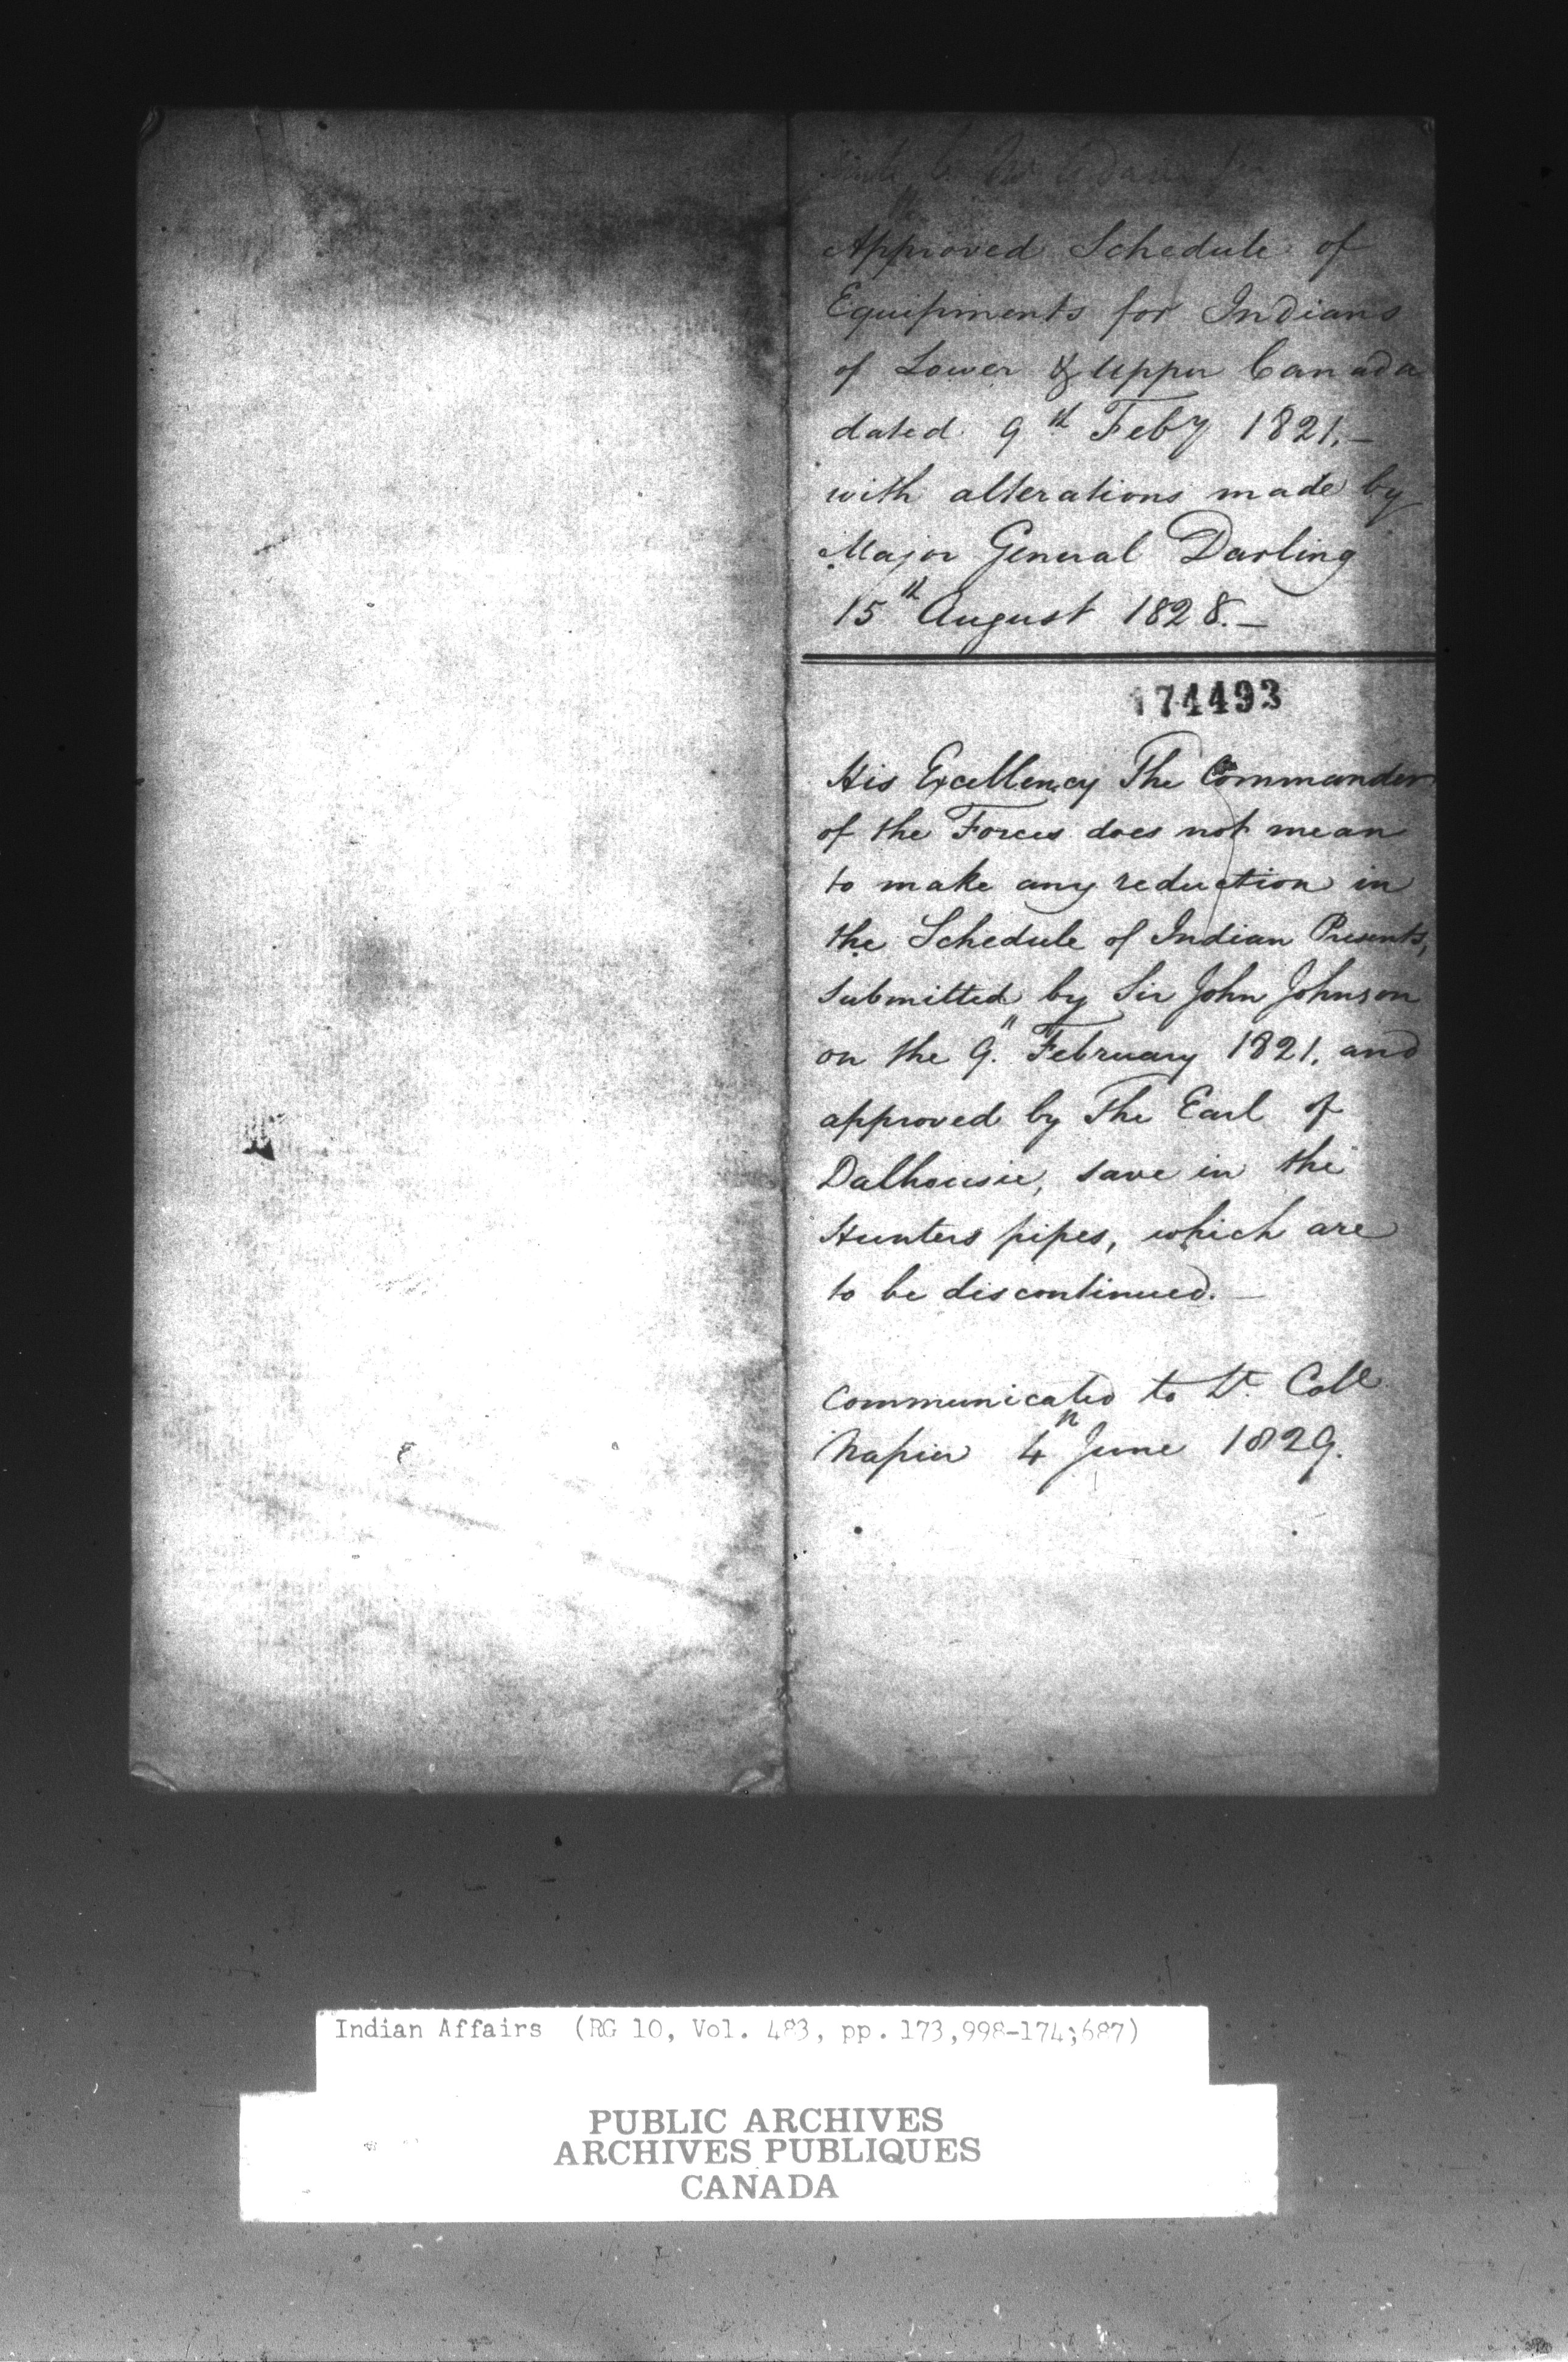 Approved Schedule of
Equipments for Indians
of Lower & Upper Canada
dated 9th Feby 1821.—
with alterations made by
Major General Darling
15th August 1828.—
174493
His Excellency The Commander
of the Forces does not mean
to make any reduction in
the Schedule of Indian Presents,
submitted by Sir John Johnson
on the 9th February 1821, and
approved by The Earl of
Dalhousie, save in the
Hunters pipes, which are
to be discontinued.—
Communicated to Lt. Coll
Napier 4th June 1829.
Indian Affairs (RG 10, Vol. 483, pp. 173,998-174;687)
PUBLIC ARCHIVES
ARCHIVES PUBLIQUES
CANADA